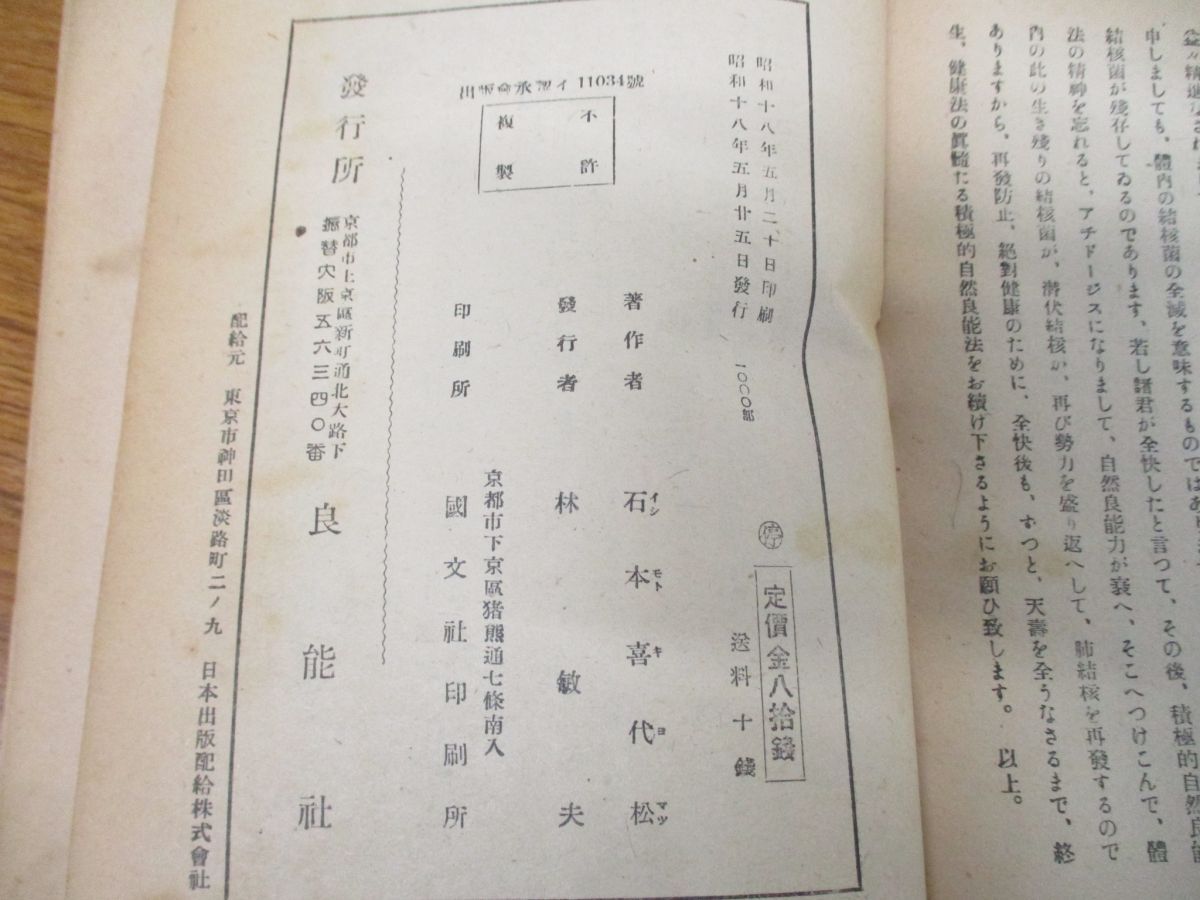 申しましても、體內の結核菌の全滅を意味するものではあ
結核菌が殘存してゐるのであります。若し諸君が全快したと言つて、その後、積極的自然良能
法の精神を忘れると、アチドージスになりまして、自然良能力が衰へ、そこへつけこんで、體
內の此の生き殘りの結核菌が、潛伏結核が、再び勢力を盛り返へして、肺結核を再發するので
ありますから、再發防止、絕對健康のために、全快後も、ずつと、天壽を全うなさるまで、終
生、健康法の眞髓たる積極的自然良能法をお續け下さるようにお願ひ致します。 以上。
昭和十八年五月二十日印刷
昭和十八年五月廿五日發行 一〇〇〇部
停 定價金八拾錢
送料十錢
不許
複製
出版會承認イ 11034號
著作者 石本喜代松
イシ モト キ ヨ マツ
發行者 林敏夫
京都市下京區猪熊通七條南入
印刷所 國文社印刷所
發行所 京都市上京區新町通北大路下
振替大阪五六三四〇番
良能社
配給元 東京市神田區淡路町二ノ九 日本出版配給株式會社